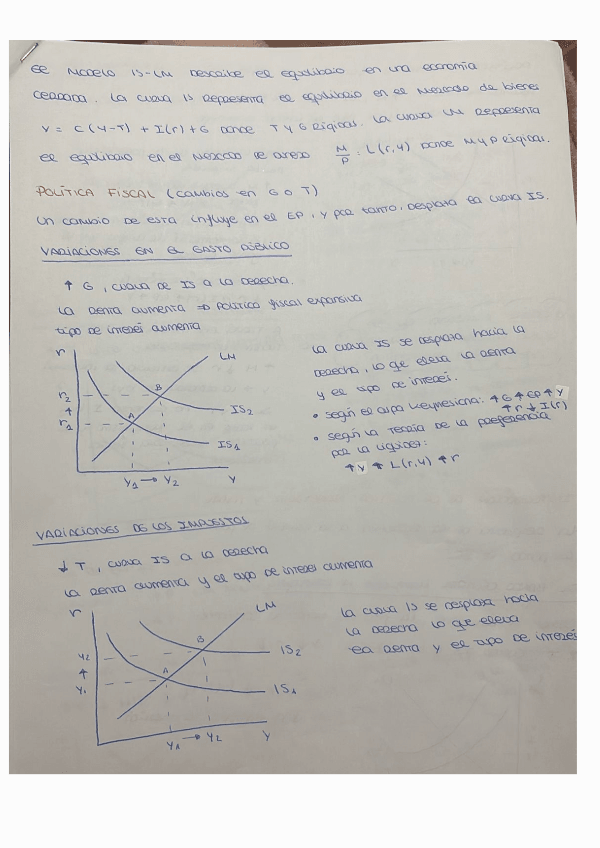 EL MODELO IS-LM DESCRIBE EL EQUILIBRIO EN UNA ECONOMÍA
CERRADA. LA CURVA IS REPRESENTA EL EQUILIBRIO EN EL MERCADO DE BIENES
Y = C(Y-T) + I(r) + G DONDE T Y G RÍGIDAS. LA CURVA LM REPRESENTA
EL EQUILIBRIO EN EL MERCADO DE M/P = L(r,Y) DONDE M Y P RÍGIDAS.
POLÍTICA FISCAL (cambios en G o T)
UN CAMBIO DE ESTA INFLUYE EN EL EP, Y POR TANTO, DESPLAZA LA CURVA IS.
VARIACIONES EN EL GASTO PÚBLICO
↑ G, CURVA DE IS A LA DERECHA.
LA RENTA AUMENTA => POLÍTICA FISCAL EXPANSIVA
TIPO DE INTERÉS AUMENTA
r
LM
r2
↑
r1
B
A
IS2
IS1
Y1 → Y2
Y
LA CURVA IS SE DESPLAZA HACIA LA
DERECHA, LO QUE ELEVA LA RENTA
Y EL TIPO DE INTERÉS.
• SEGÚN EL ASPA KEYNESIANA: ↑G ↑EP ↑Y
↑r ↓I(r)
• SEGÚN LA TEORÍA DE LA PREFERENCIA
POR LA LIQUIDEZ:
↑Y ↑ L(r,Y) ↑r
VARIACIONES DE LOS IMPUESTOS
↓ T, CURVA IS A LA DERECHA
LA RENTA AUMENTA Y EL TIPO DE INTERÉS AUMENTA
r
LM
Y2
↑
Y1
B
A
IS2
IS1
Y1 → Y2
Y
LA CURVA IS SE DESPLAZA HACIA
LA DERECHA LO QUE ELEVA
LA RENTA Y EL TIPO DE INTERÉS